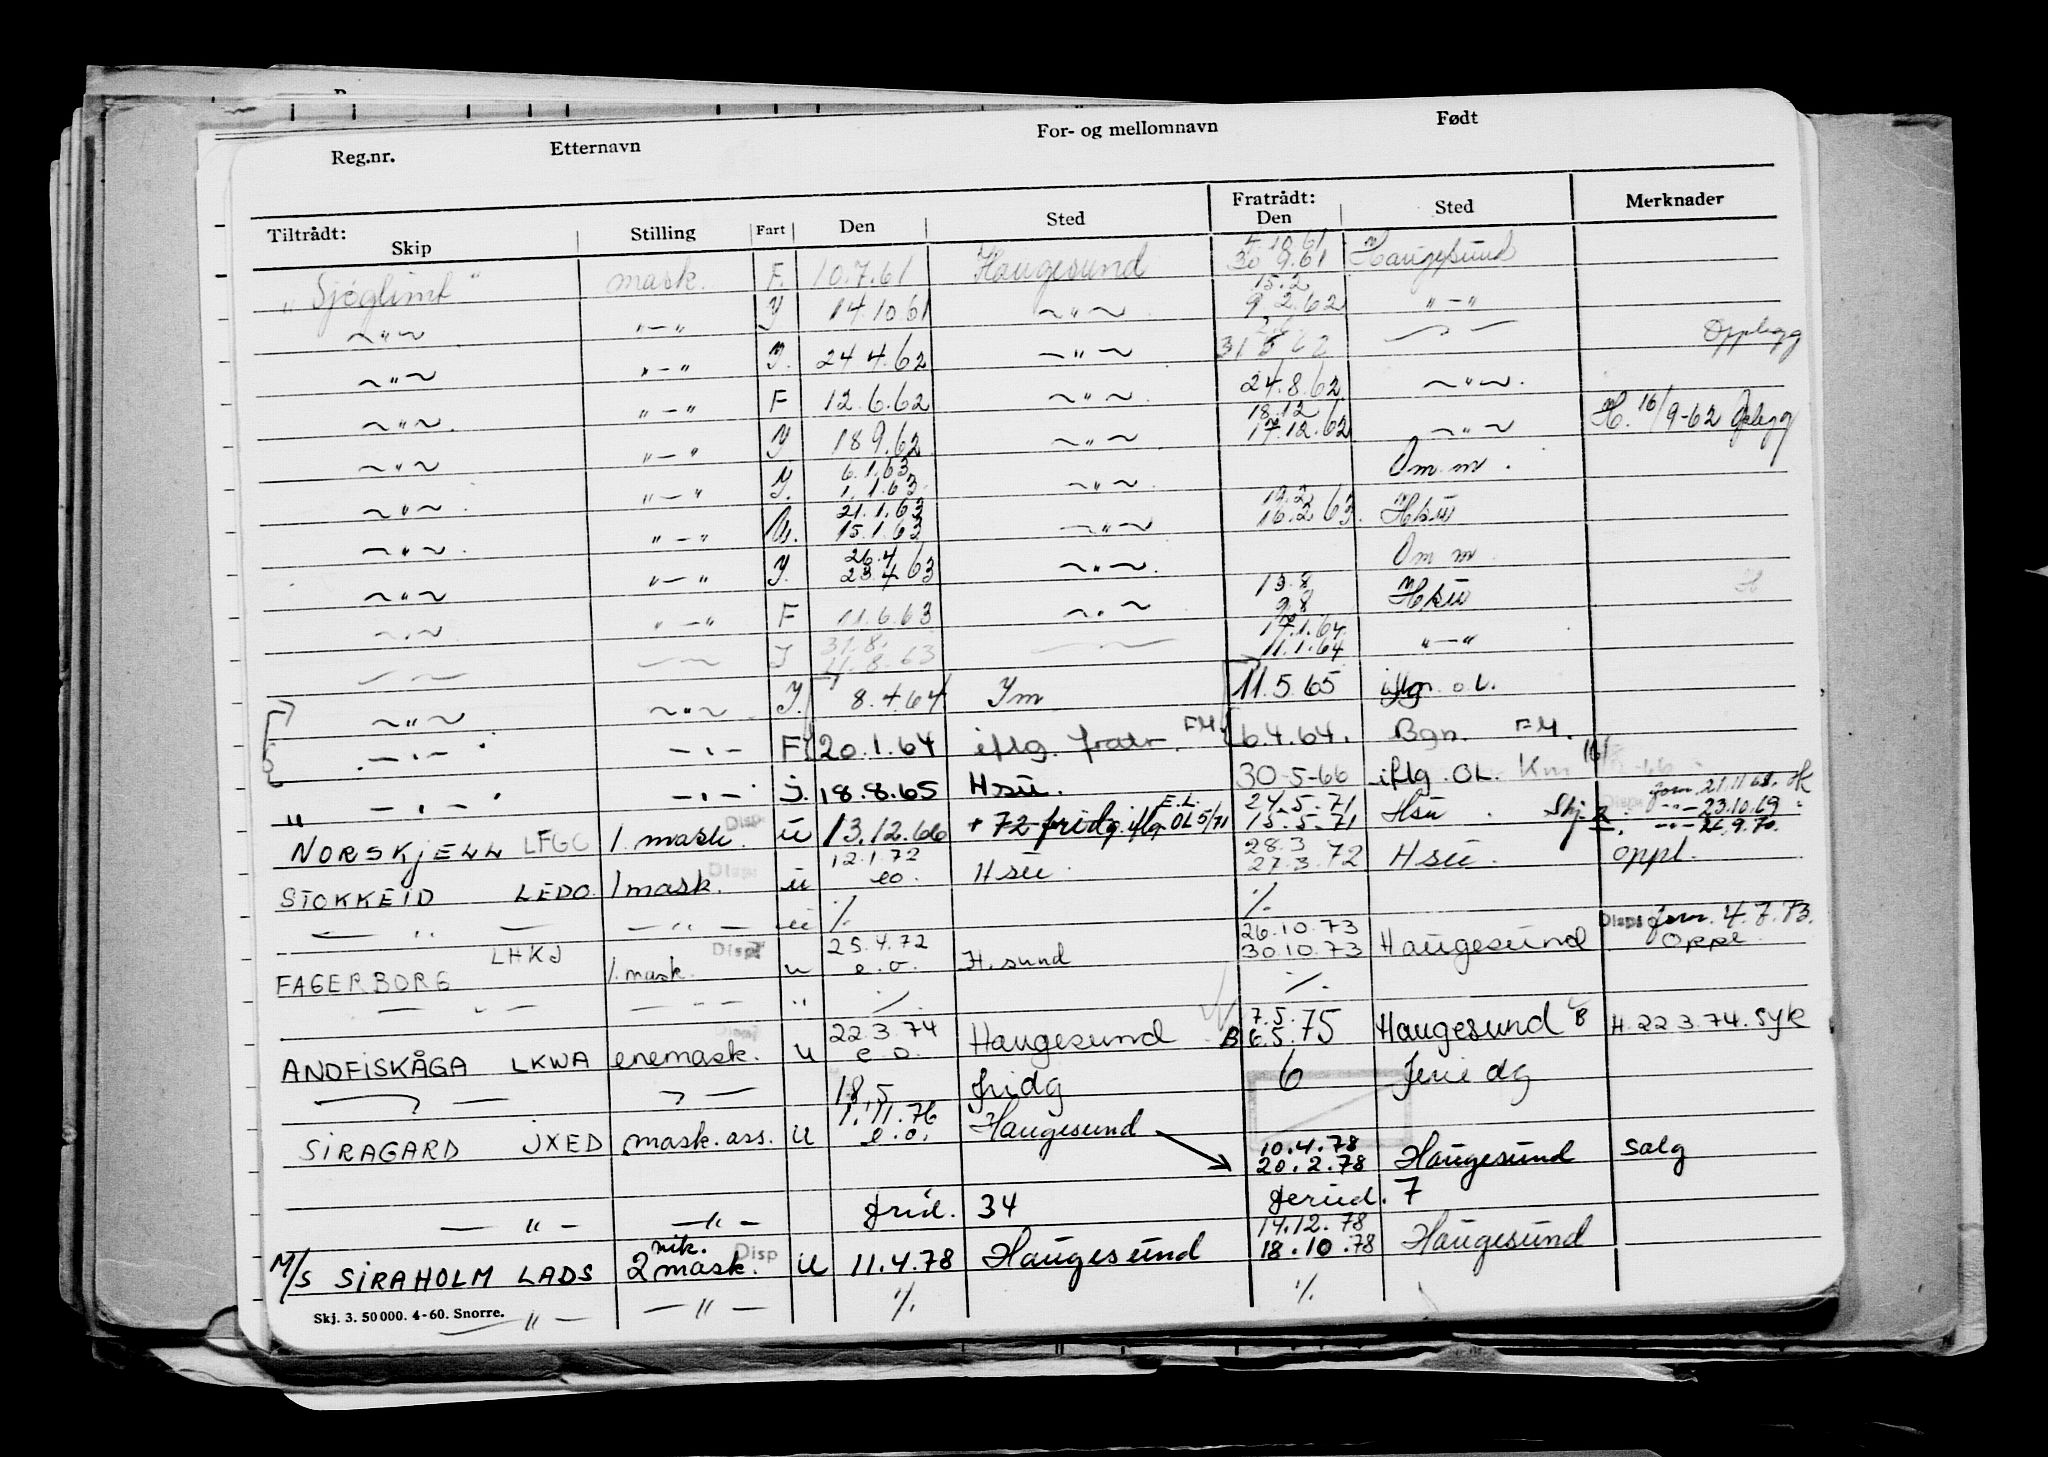 Reg.nr. Etternavn For- og mellomnavn Født
Tiltrådt: Skip Stilling Fart Den Sted Fratrådt: Den Sted Merknader
4.10.61
"Sjøglimt" mask. F. 10.7.61 Haugesund 30 9.61 Haugesund
15.2
~"~ "-" Y 14.10.61 ~"~ 9 2.62 "-"
~"~ "-" Y. 24 4.62 ~"~ 31 5 62 Opplegg
~"~ "-" F 12.6.62 ~"~ 24.8.62 ~"~
18.12
~"~ "-" Y 18 9.62 ~"~ 17.12.62 ~"~ H. 16/9-62 Oplegg
6.1.63
~"~ "-" Y. 1.1.63 ~"~ Om m.
21.1.63 19.2
~"~ "-" U. 15.1.63 ~"~ 16.2 63. Hsu
26.4
~"~ "-" Y. 23.4 63 ~"~ Om m
13.8
~"~ "-" F 11.6.63 ~"~ 9.8 Hsu H
31.8. 17.1.64
~ ~ I 8.63 11.1.64 "-"
~"~ ~"~ Y. 8.4.64 Ym 11.5.65 iflg. o.l.
-"- -"- F 20.1.64 iflg. fratr. FM 6.4.64. Bgn. FM.
-"- -"- j. 18.8.65 Hsu. 30-5-66 iflg. OL. Km
E.L. 24.5.71 fom. 21.11.68. H
NORSKJELL LFGC 1. mask. Disp u 13.12.66 + 72 fridg. iflg OL 5/71 15.5.71 Hsu. Skj. 2. -"- 23.10.69
-"- 26.9.70.
12.1.72 28.3
STOKKEID LEDO 1 mask. Disp u eo. Hsu. 27.3.72 Hsu. oppl.
- " - - " - u ./. ./.
25.4.72 26.10.73 Disp fom. 4.7.73.
FAGERBORG LHKJ 1. mask. Disp u e.o. H.sund 30.10.73 Haugesund oppl
- " - - " - " ./. ./.
22.3.74 7.5.
ANDFISKÅGA LKWA enemask. Disp u e.o. Haugesund B 6.5.75 Haugesund B H. 22 3.74. Syk
- " - - " - 18,5 fridg 6 feriedg
1.11.76
SIRAGARD JXED mask. ass. U e.o. Haugesund
10.4.78
20.2.78 Haugesund salg
- " - - " - frid. 34 feried. 7
vik. 14.12.78
M/S SIRAHOLM LADS 2 mask. Disp U 11.4.78 Haugesund 18.10.78 Haugesund
- " - - " - ./. ./.
Skj. 3. 50 000. 4-60. Snorre.